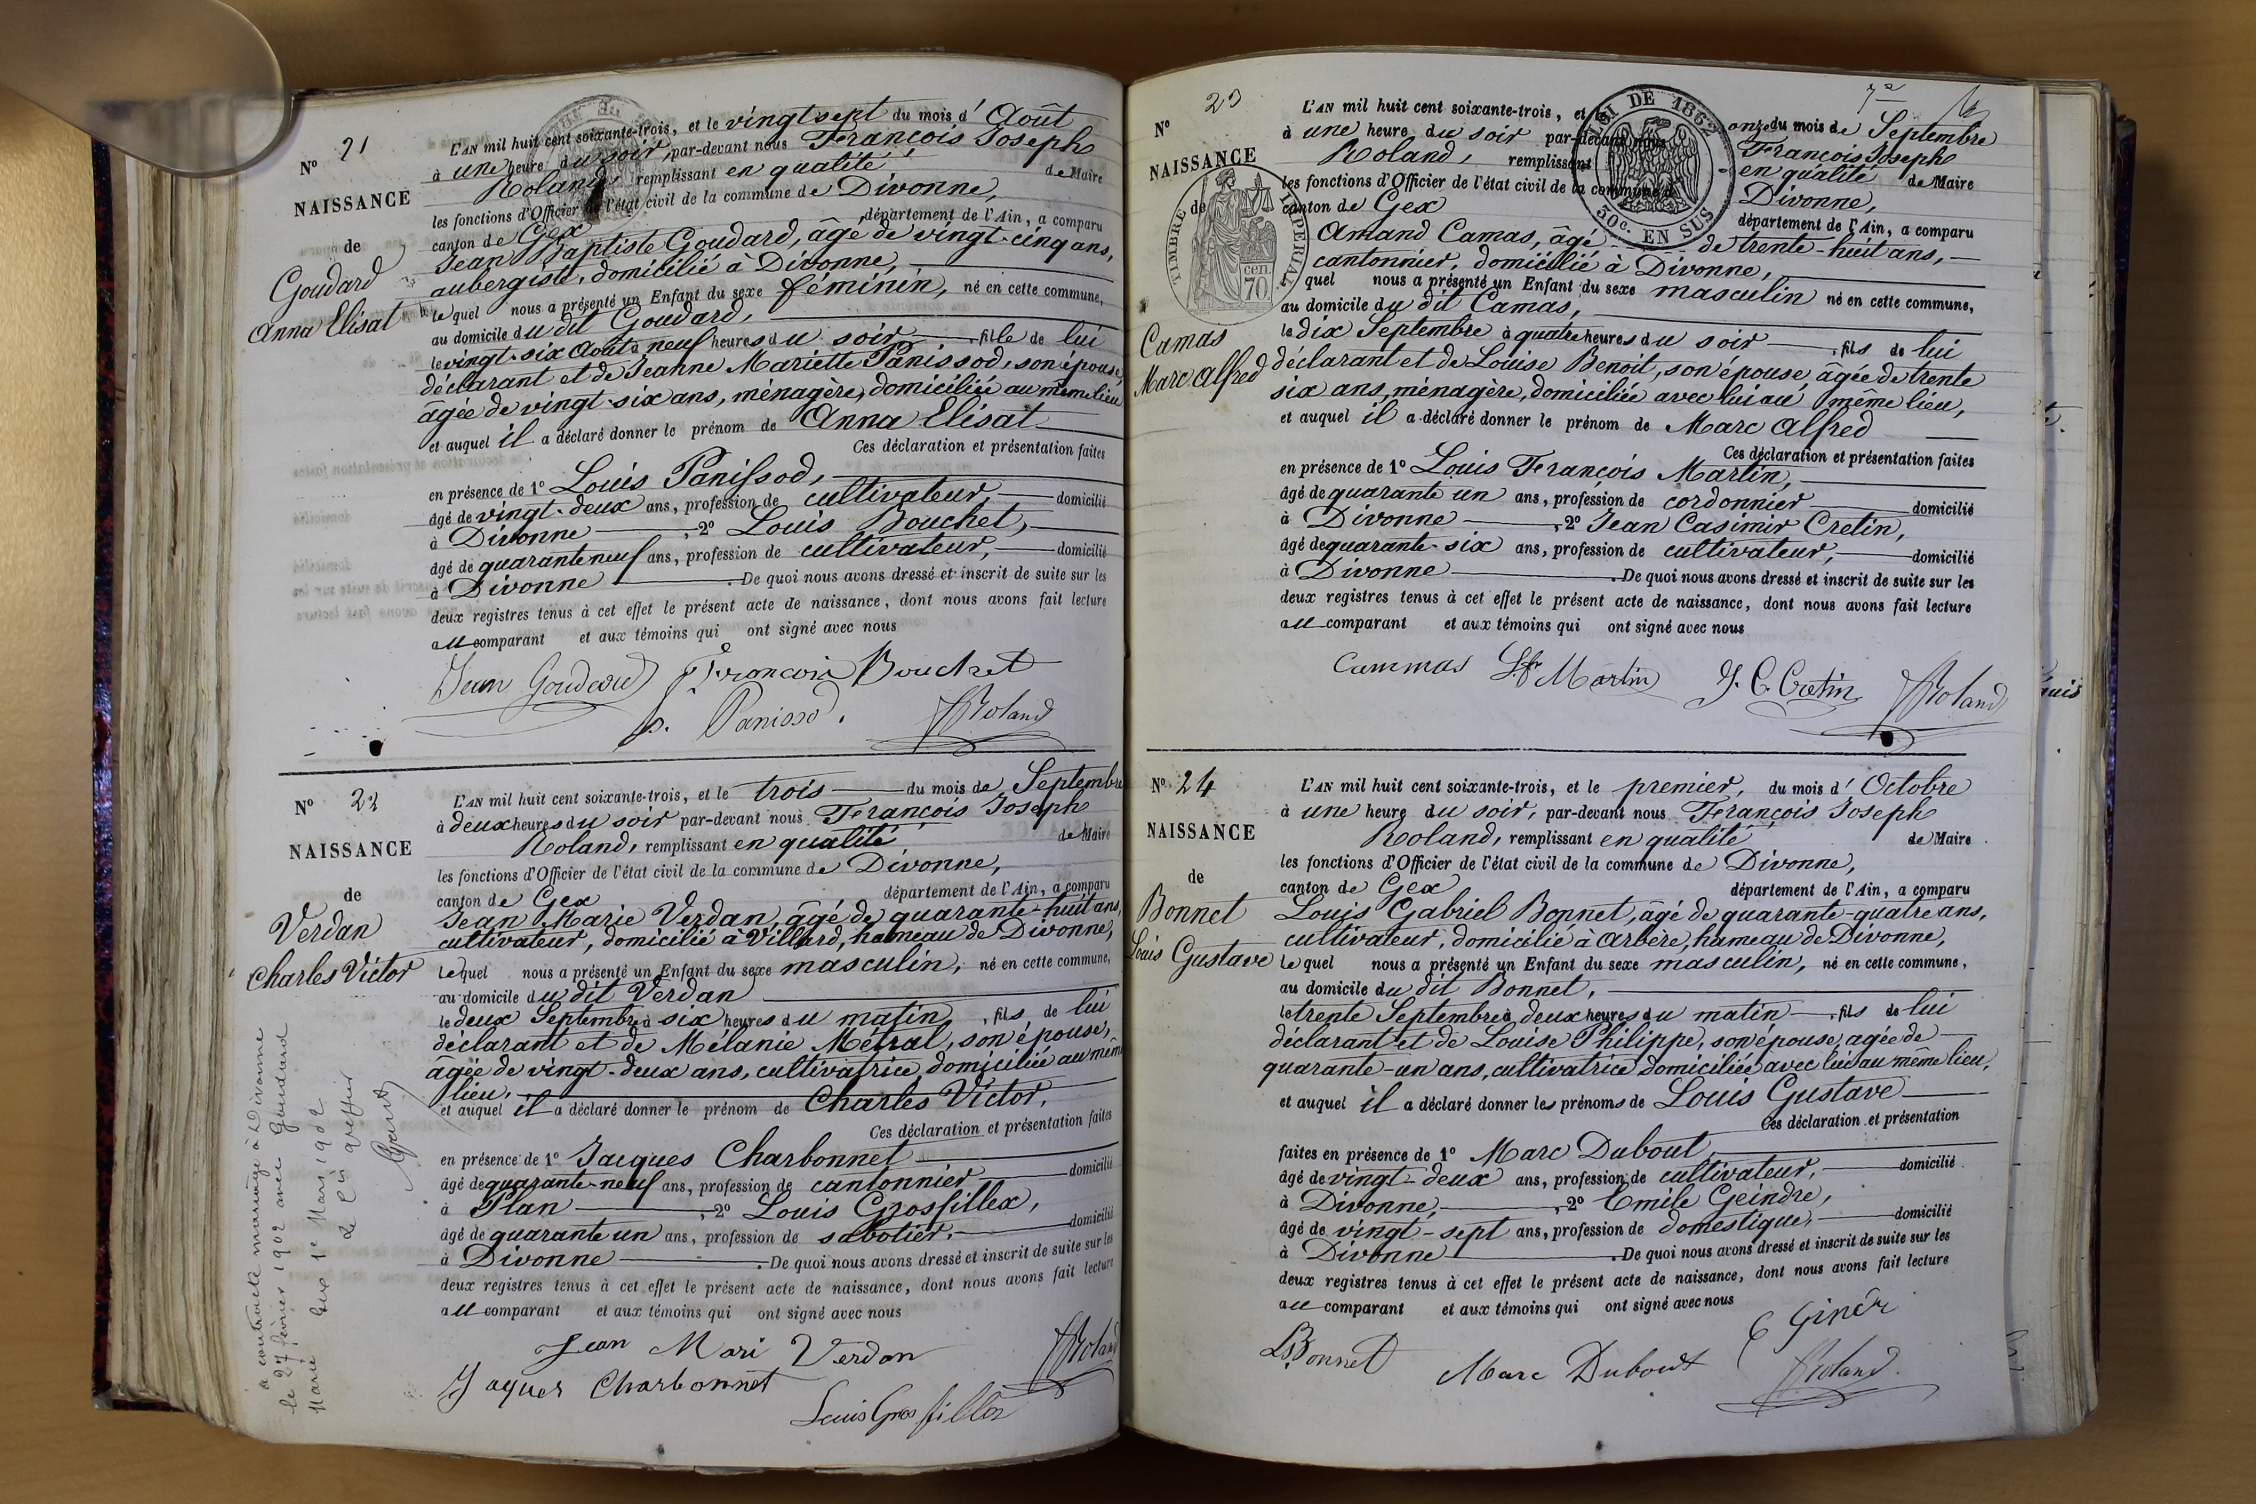 N° 21
NAISSANCE
de
Goudard
Anna Elisat
L'AN mil huit cent soixante-trois, et le vingt sept du mois d'Août
à une heure du soir, par-devant nous François Joseph
Roland, remplissant en qualité de Maire
les fonctions d'Officier de l'état civil de la commune de Divonne,
canton de Gex département de l'Ain, a comparu
Jean Baptiste Goudard, âgé de vingt-cinq ans,
aubergiste, domicilié à Divonne,
lequel nous a présenté un Enfant du sexe féminin, né en cette commune,
au domicile du dit Goudard,
le vingt-six Août à neuf heures du soir, fille de lui
déclarant et de Jeanne Mariette Panissod, son épouse,
âgée de vingt-six ans, ménagère, domiciliée au même lieu
et auquel il a déclaré donner le prénom de Anna Elisat
Ces déclaration et présentation faites
en présence de 1° Louis Panissod,
âgé de vingt-deux ans, profession de cultivateur, domicilié
à Divonne, 2° Louis Bouchet,
âgé de quarante neuf ans, profession de cultivateur, domicilié
à Divonne. De quoi nous avons dressé et inscrit de suite sur les
deux registres tenus à cet effet le présent acte de naissance, dont nous avons fait lecture
au comparant et aux témoins qui ont signé avec nous
Jean Goudard François Bouchet
Panissod. Roland
N° 22
NAISSANCE
de
Verdan
Charles Victor
L'AN mil huit cent soixante-trois, et le trois du mois de Septembre
à deux heures du soir par-devant nous François Joseph
Roland, remplissant en qualité de Maire
les fonctions d'Officier de l'état civil de la commune de Divonne,
canton de Gex département de l'Ain, a comparu
Jean Marie Verdan, âgé de quarante-huit ans,
cultivateur, domicilié à Villard, hameau de Divonne,
lequel nous a présenté un Enfant du sexe masculin, né en cette commune,
au domicile du dit Verdan
le deux Septembre à six heures du matin, fils de lui
déclarant et de Mélanie Métral, son épouse,
âgée de vingt-deux ans, cultivatrice, domiciliée au même
lieu,
et auquel il a déclaré donner le prénom de Charles Victor,
Ces déclaration et présentation faites
en présence de 1° Jacques Charbonnet
âgé de quarante-neuf ans, profession de cantonnier domicilié
à Plan, 2° Louis Grosfillex,
âgé de quarante un ans, profession de sabotier, domicilié
à Divonne. De quoi nous avons dressé et inscrit de suite sur les
deux registres tenus à cet effet le présent acte de naissance, dont nous avons fait lecture
au comparant et aux témoins qui ont signé avec nous
Jean Mari Verdan Roland
Jaques Charbonnet
Louis Grosfillex
a contracté mariage à Divonne
le 27 février 1902 avec Goudard
Marie Gex 1e Mars 1902
Le Cis greffier
N° 23
NAISSANCE
de
Camas
Marc Alfred
TIMBRE IMPERIAL
70 cen.
LOI DE 1862
50c. EN SUS
L'AN mil huit cent soixante-trois, et le onze du mois de Septembre
à une heure du soir par-devant nous François Joseph
Roland, remplissant en qualité de Maire
les fonctions d'Officier de l'état civil de la commune de Divonne,
canton de Gex département de l'Ain, a comparu
Amand Camas, âgé de trente-huit ans,
cantonnier, domicilié à Divonne,
quel nous a présenté un Enfant du sexe masculin né en cette commune,
au domicile du dit Camas,
le dix Septembre à quatre heures du soir, fils de lui
déclarant et de Louise Benoit, son épouse âgée de trente
six ans, ménagère, domiciliée avec lui au même lieu,
et auquel il a déclaré donner le prénom de Marc Alfred
Ces déclaration et présentation faites
en présence de 1° Louis François Martin,
âgé de quarante un ans, profession de cordonnier domicilié
à Divonne, 2° Jean Casimir Cretin,
âgé de quarante-six ans, profession de cultivateur, domicilié
à Divonne. De quoi nous avons dressé et inscrit de suite sur les
deux registres tenus à cet effet le présent acte de naissance, dont nous avons fait lecture
au comparant et aux témoins qui ont signé avec nous
Cammas L.f. Martin J. C. Cretin Roland
N° 24
NAISSANCE
de
Bonnet
Louis Gustave
L'AN mil huit cent soixante-trois, et le premier, du mois d'Octobre
à une heure du soir, par-devant nous François Joseph
Roland, remplissant en qualité de Maire
les fonctions d'Officier de l'état civil de la commune de Divonne,
canton de Gex département de l'Ain, a comparu
Louis Gabriel Bonnet, âgé de quarante-quatre ans,
cultivateur, domicilié à Arbère, hameau de Divonne,
lequel nous a présenté un Enfant du sexe masculin, né en cette commune,
au domicile du dit Bonnet,
le trente Septembre à deux heures du matin, fils de lui
déclarant et de Louise Philippe, son épouse, agée de
quarante-un ans, cultivatrice domiciliée avec lui au même lieu,
et auquel il a déclaré donner les prénoms de Louis Gustave
Ces déclaration et présentation
faites en présence de 1° Marc Dubout,
âgé de vingt-deux ans, profession de cultivateur, domicilié
à Divonne, 2° Emile Geindre,
âgé de vingt-sept ans, profession de domestique, domicilié
à Divonne. De quoi nous avons dressé et inscrit de suite sur les
deux registres tenus à cet effet le présent acte de naissance, dont nous avons fait lecture
au comparant et aux témoins qui ont signé avec nous
LBonnet Marc Dubout Roland